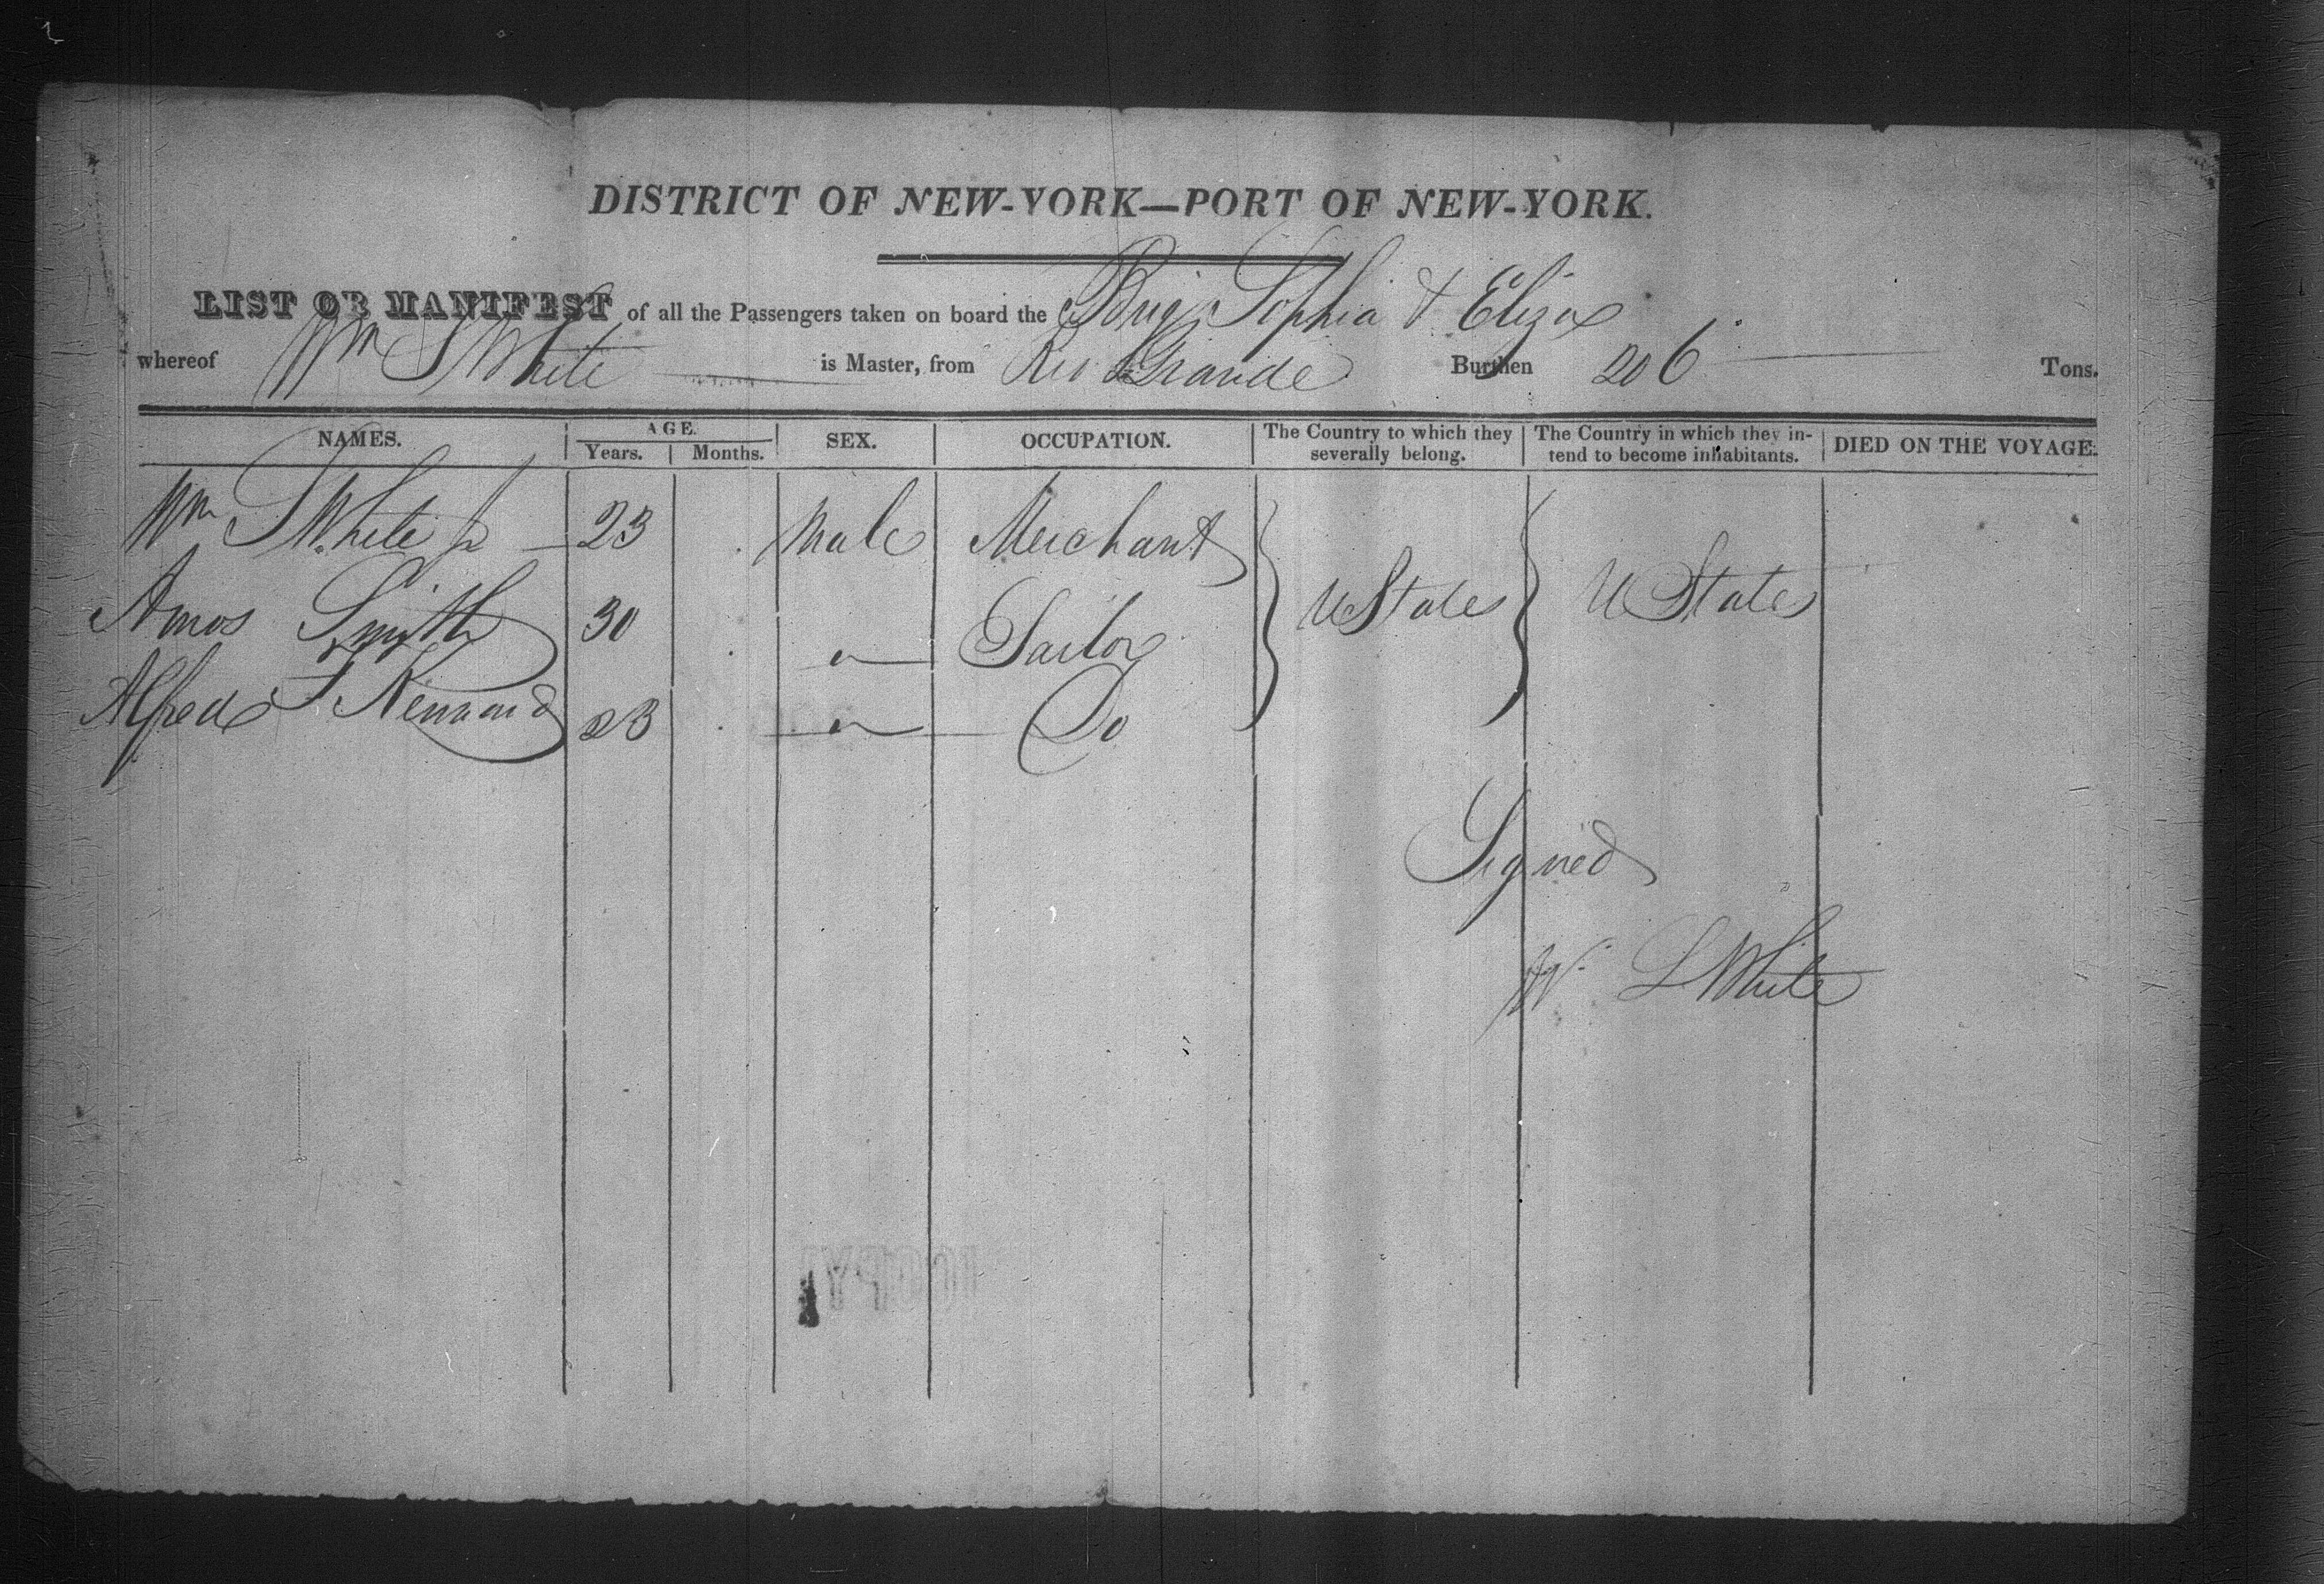 DISTRICT OF NEW-YORK—PORT OF NEW-YORK.
LIST OR MANIFEST of all the Passengers taken on board the Brig Sophia & Eliza
whereof Wm S White is Master, from Rio Grande Burthen 206 Tons.
NAMES. AGE. Years. Months. SEX. OCCUPATION. The Country to which they severally belong. The Country in which they intend to become inhabitants. DIED ON THE VOYAGE.
Wm S White Jr 23 Male Merchant
Amos Smith 30 " Sailor U States U States
Alfred F Kennard 23 " Do
Signed
W S White
COPY